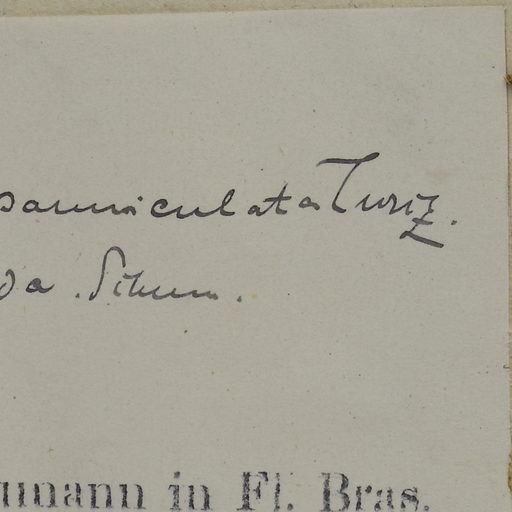 paniculata Turcz.
da Schum.
umann in Fl. Bras.